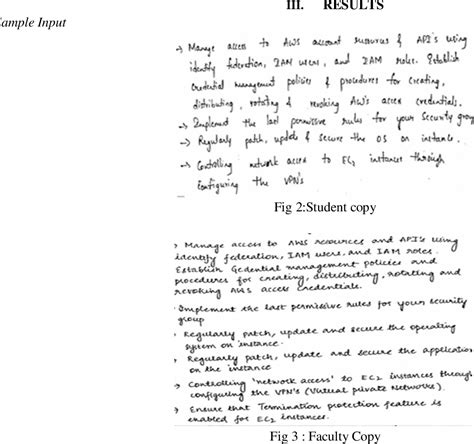 III. RESULTS
Sample Input
→ Manage access to AWS account resources & API's using
identify federation, IAM users, and IAM roles. Establish
Credential management policies & procedures for creating,
distributing, rotating & revoking AWS access credentials.
→ Implement the last permissive rules for your security group
→ Regularly patch, update & secure the OS on instance.
→ Controlling network access to EC2 instances through
Configuring the VPN's
Fig 2:Student copy
Manage access to AWS resources and API's using
identify federation, IAM users, and IAM roles.
Establish Credential management policies and
procedures for creating, distributing, rotating and
revoking AWS access credentials.
Implement the last permissive rules for your security
group
Regularly patch, update and secure the operating
system on instance.
Regularly patch, update and secure the application
on the instance
Controlling 'network access' to EC2 instances through
configuring the VPN's (Virtual private Networks).
Ensure that Termination protection feature is
enabled for EC2 instances.
Fig 3 : Faculty Copy